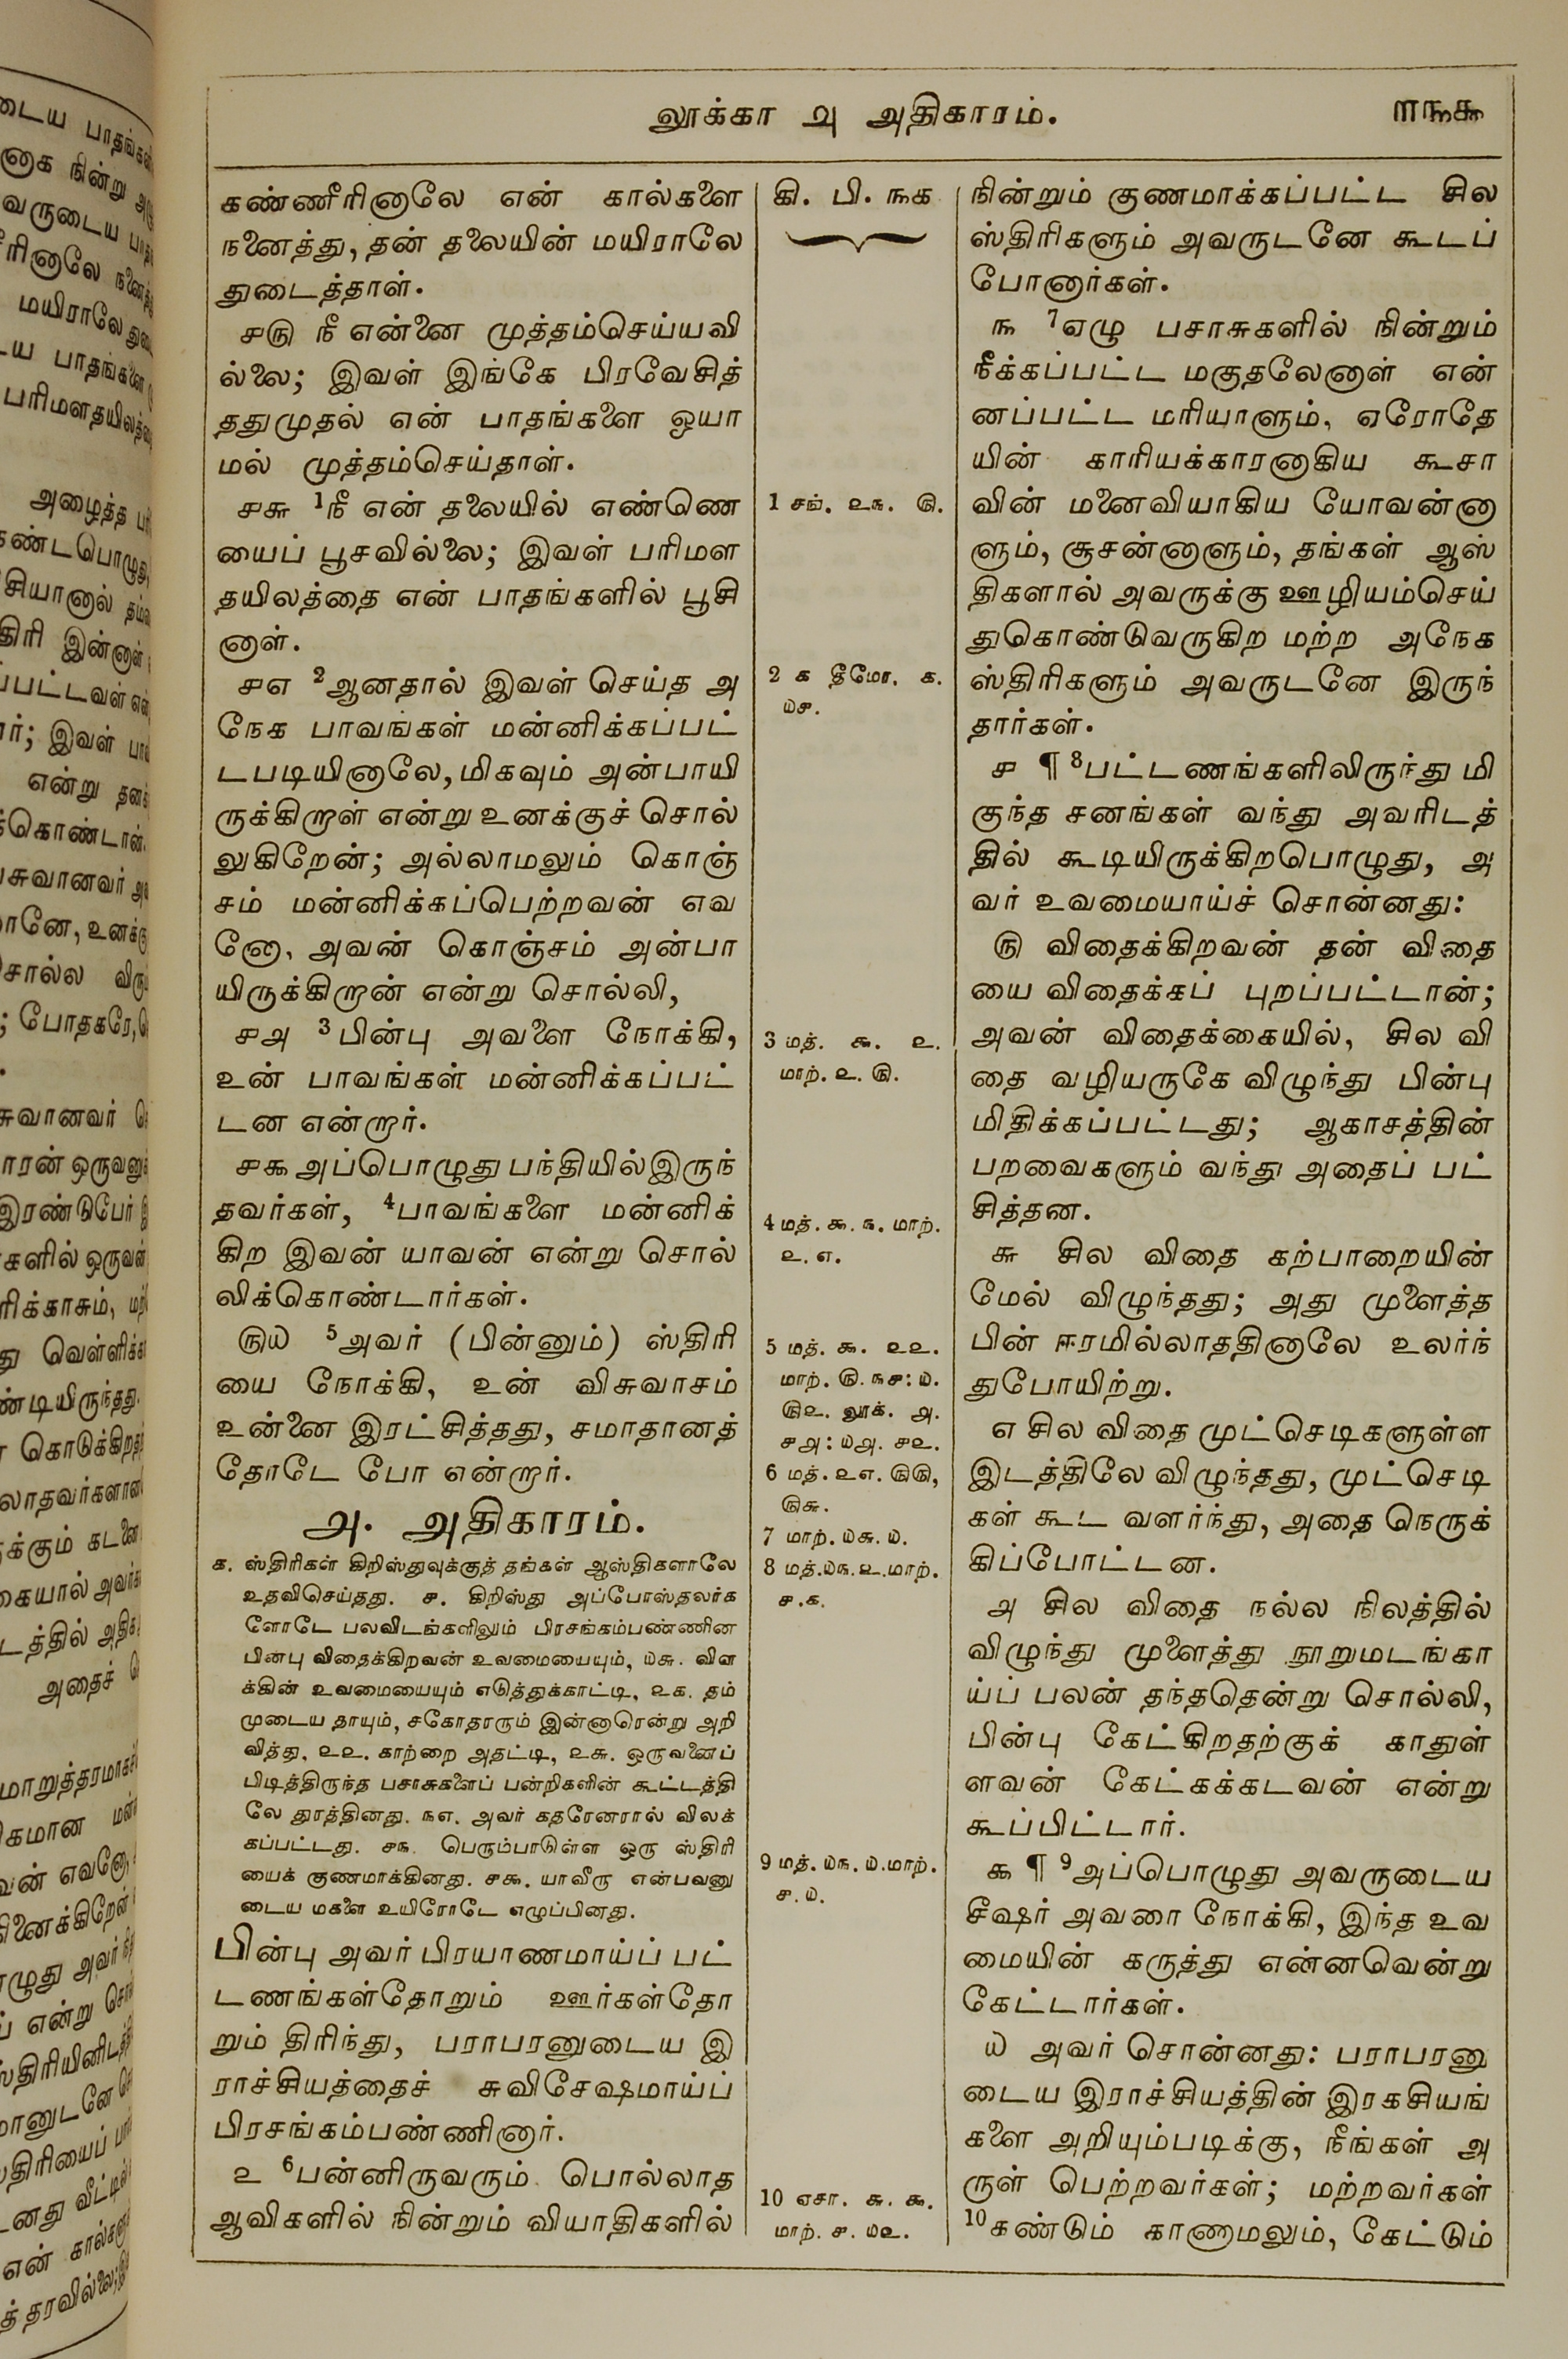 லூக்கா ௮ அதிகாரம்.
கண்ணீரினாலே என் கால்களை
நனைத்து, தன் தலையின் மயிராலே
துடைத்தாள்.
௪௫ நீ என்னை முத்தம்செய்யவி
ல்லை; இவள் இங்கே பிரவேசித்
ததுமுதல் என் பாதங்களை ஒயா
மல் முத்தம்செய்தாள்.
௪௬ 1நீ என் தலையில் எண்ணெ
யைப் பூசவில்லை; இவள் பரிமள
தயிலத்தை என் பாதங்களில் பூசி
னாள்.
௪௭ 2ஆனதால் இவள் செய்த அ
நேக பாவங்கள் மன்னிக்கப்பட்
டபடியினாலே, மிகவும் அன்பாயி
ருக்கிறாள் என்று உனக்குச் சொல்
லுகிறேன்; அல்லாமலும் கொஞ்
சம் மன்னிக்கப்பெற்றவன் எவ
னோ, அவன் கொஞ்சம் அன்பா
யிருக்கிறான் என்று சொல்லி,
௪௮ 3பின்பு அவளை நோக்கி,
உன் பாவங்கள் மன்னிக்கப்பட்
டன என்றார்.
௪௯ அப்பொழுது பந்தியில்இருந்
தவர்கள், 4பாவங்களை மன்னிக்
கிற இவன் யாவன் என்று சொல்
லிக்கொண்டார்கள்.
௫௰ 5அவர் (பின்னும்) ஸ்திரி
யை நோக்கி, உன் விசுவாசம்
உன்னை இரட்சித்தது, சமாதானத்
தோடே போ என்றார்.
௮. அதிகாரம்.
௧. ஸ்திரிகள் கிறிஸ்துவுக்குத் தங்கள் ஆஸ்திகளாலே
உதவிசெய்தது. ௪. கிறிஸ்து அப்போஸ்தலர்க
ளோடே பலவிடங்களிலும் பிரசங்கம்பண்ணின
பின்பு விதைக்கிறவன் உவமையையும், ௰௬. விள
க்கின் உவமையையும் எடுத்துக்காட்டி, ௨௧. தம்
முடைய தாயும், சகோதரரும் இன்னாரென்று அறி
வித்து, ௨௨. காற்றை அதட்டி, ௨௬. ஒருவனைப்
பிடித்திருந்த பசாசுகளைப் பன்றிகளின் கூட்டத்தி
லே துரத்தினது. ௩௭. அவர் கதரேனரால் விலக்
கப்பட்டது. ௪௩. பெரும்பாடுள்ள ஒரு ஸ்திரி
யைக் குணமாக்கினது. ௪௯. யாவீரு என்பவனு
டைய மகளை உயிரோடே எழுப்பினது.
பின்பு அவர் பிரயாணமாய்ப் பட்
டணங்கள்தோறும் ஊர்கள்தோ
றும் திரிந்து, பராபரனுடைய இ
ராச்சியத்தைச் சுவிசேஷமாய்ப்
பிரசங்கம்பண்ணினார்.
௨ 6பன்னிருவரும் பொல்லாத
ஆவிகளில் நின்றும் வியாதிகளில்
கி. பி. ௩௧
1 சங். ௨௩. ௫.
2 ௧ தீமோ. ௧.
௰௪.
3 மத். ௯. ௨.
மாற். ௨. ௫.
4 மத். ௯. ௩. மாற்.
௨. ௭.
5 மத். ௯. ௨௨.
மாற். ௫. ௩௪: ௰.
௫௨. லூக். ௮.
௪௮: ௰௮. ௪௨.
6 மத். ௨௭. ௫௫,
௫௬.
7 மாற். ௰௬. ௯.
8 மத்.௰௩.௨.மாற்.
௪.௧.
9 மத். ௰௩. ௰.மாற்.
௪. ௰.
10 ஏசா. ௬. ௯.
மாற். ௪. ௰௨.
நின்றும் குணமாக்கப்பட்ட சில
ஸ்திரிகளும் அவருடனே கூடப்
போனார்கள்.
௩ 7ஏழு பசாசுகளில் நின்றும்
நீக்கப்பட்ட மகுதலேனாள் என்
னப்பட்ட மரியாளும், ஏரோதே
யின் காரியக்காரனாகிய கூசா
வின் மனைவியாகிய யோவன்னா
ளும், சூசன்னாளும், தங்கள் ஆஸ்
திகளால் அவருக்கு ஊழியம்செய்
துகொண்டுவருகிற மற்ற அநேக
ஸ்திரிகளும் அவருடனே இருந்
தார்கள்.
௪ ¶ 8பட்டணங்களிலிருந்து மி
குந்த சனங்கள் வந்து அவரிடத்
தில் கூடியிருக்கிறபொழுது, அ
வர் உவமையாய்ச் சொன்னது:
௫ விதைக்கிறவன் தன் விதை
யை விதைக்கப் புறப்பட்டான்;
அவன் விதைக்கையில், சில வி
தை வழியருகே விழுந்து பின்பு
மிதிக்கப்பட்டது; ஆகாசத்தின்
பறவைகளும் வந்து அதைப் பட்
சித்தன.
௬ சில விதை கற்பாறையின்
மேல் விழுந்தது; அது முளைத்த
பின் ஈரமில்லாததினாலே உலர்ந்
துபோயிற்று.
௭ சில விதை முட்செடிகளுள்ள
இடத்திலே விழுந்தது, முட்செடி
கள் கூட வளர்ந்து, அதை நெருக்
கிப்போட்டன.
௮ சில விதை நல்ல நிலத்தில்
விழுந்து முளைத்து நூறுமடங்கா
ய்ப் பலன் தந்ததென்று சொல்லி,
பின்பு கேட்கிறதற்குக் காதுள்
ளவன் கேட்கக்கடவன் என்று
கூப்பிட்டார்.
௯ ¶ 9அப்பொழுது அவருடைய
சீஷர் அவரை நோக்கி, இந்த உவ
மையின் கருத்து என்னவென்று
கேட்டார்கள்.
௰ அவர் சொன்னது: பராபரனு
டைய இராச்சியத்தின் இரகசியங்
களை அறியும்படிக்கு, நீங்கள் அ
ருள் பெற்றவர்கள்; மற்றவர்கள்
10கண்டும் காணாமலும், கேட்டும்